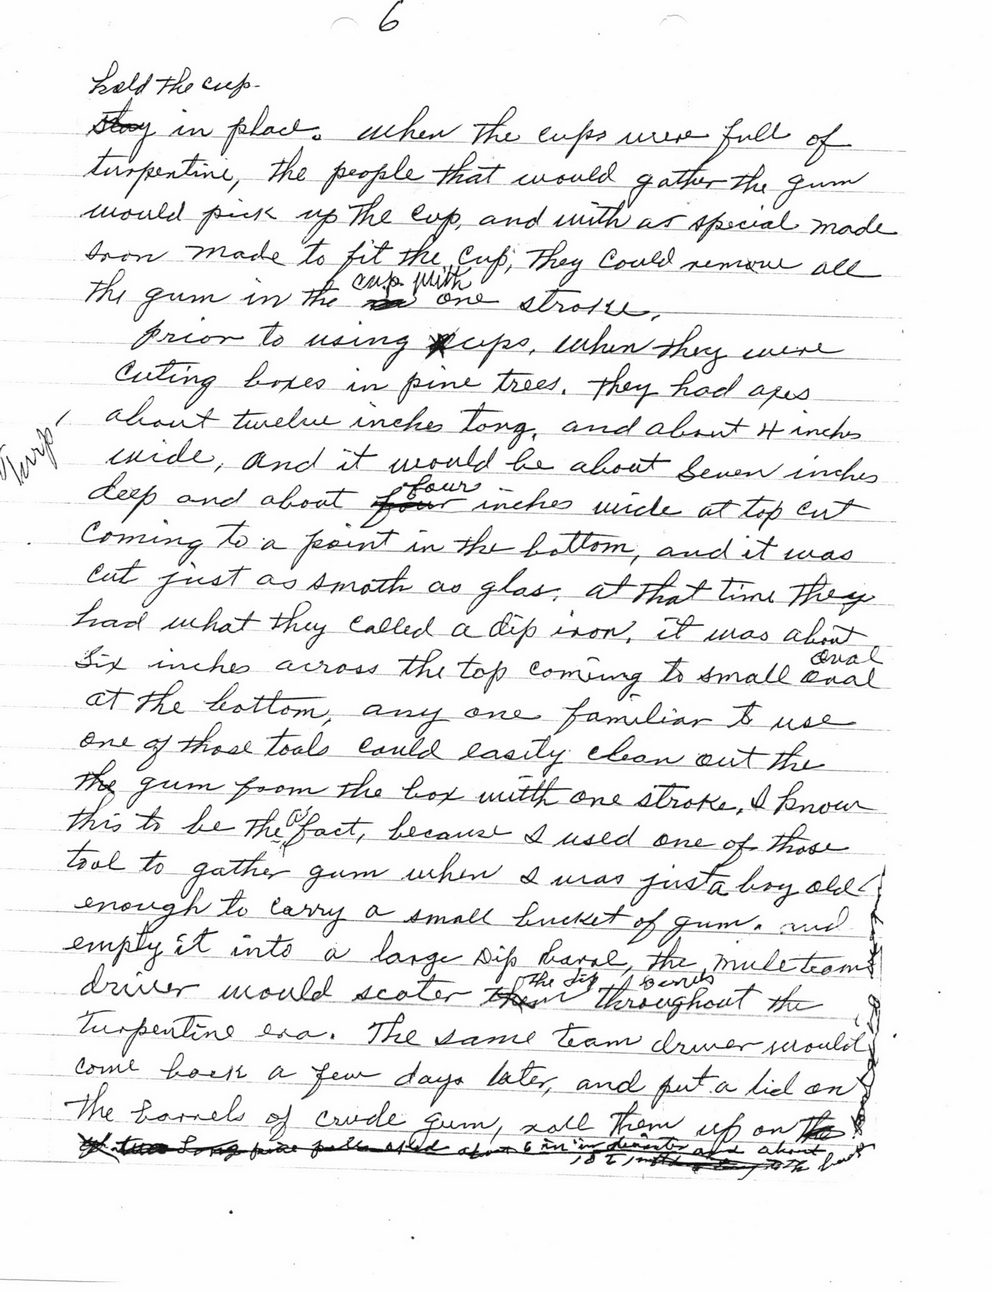 6
hold the cup.
stay in place. When the cups were full of
turpentine, the people that would gather the gum
would pick up the cup, and with a special made
iron made to fit the cup, they could remove all
the gum in the cup with one stroke.
prior to using cups, when they were
cuting boxes in pine trees. they had axes
about twelve inches long, and about 4 inches
Turp'
wide, and it would be about seven inches
deep and about four four inches wide at top cut
coming to a point in the bottom, and it was
cut just as smoth as glas. at that time they
had what they called a dip iron, it was about
six inches across the top coming to small oval oval
at the bottom, any one familiar to use
one of those tools could easily clean out the
the gum from the box with one stroke. I know
this to be the a fact, because I used one of those
tool to gather gum when I was just a boy old
enough to carry a small bucket of gum. and
empty it into a large dip barel, the mule team
driver would scater them the dip barels throughout the
turpentine era. The same team driver would
come back a few days later, and put a lid on
the barrels of crude gum, roll them up on the
two long pine poles about 6 in in diameter and about